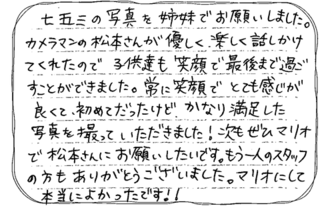 七五三の写真を姉妹でお願いしました。
カメラマンの松本さんが優しく、楽しく話しかけ
てくれたので 子供達も笑顔で最後まで過ご
すことができました。常に笑顔で とても感じが
良くて、初めてだったけど、かなり満足した
写真を撮っていただきました！次もぜひマリオ
で松本さんにお願いしたいです。もう一人のスタッフ
の方もありがとうございました。マリオにして
本当によかったです！！